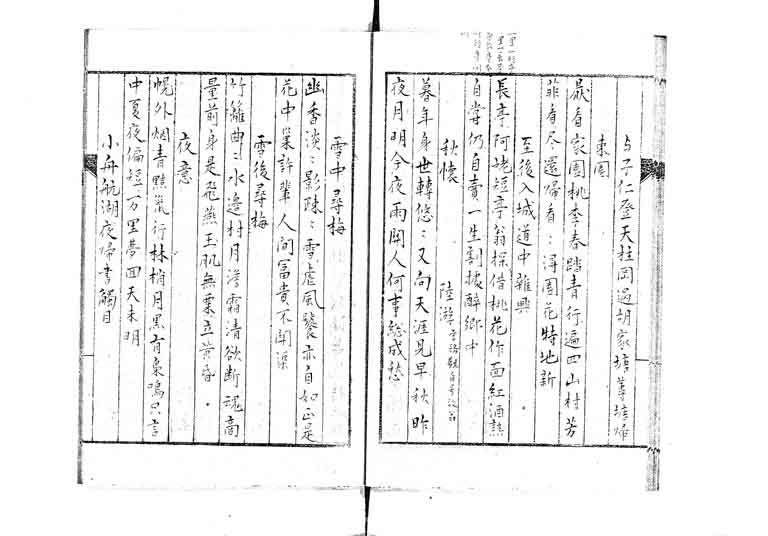 与子仁登天柱岡過胡家塘蓴塘帰
東園
厭看家園桃李春踏青行遍四山村芳
菲看尽還帰看〻得園花特地新
至後入城道中雜興
長亭阿姥短亭翁探借桃花作面紅酒熟
自嘗仍自賣一生割據醉鄉中
秋懷 陸游
暮年身世轉悠〻又向天涯見早秋昨
夜月明今夜雨関人何事総成愁
雪中尋梅
幽香淡〻影疎〻雪虐風饕亦自如正是
花中巢許輩人間冨貴不関渠
雪後尋梅
竹籬曲〻水邊村月澹霜清欲断魂商
量前身是飛燕玉肌無粟立黄昏
夜意
幌外烟青熏蒸行林梢月黒有梟鳴只言
中夏夜偏短一万里夢回天未明
小舟航湖夜帰書觸目